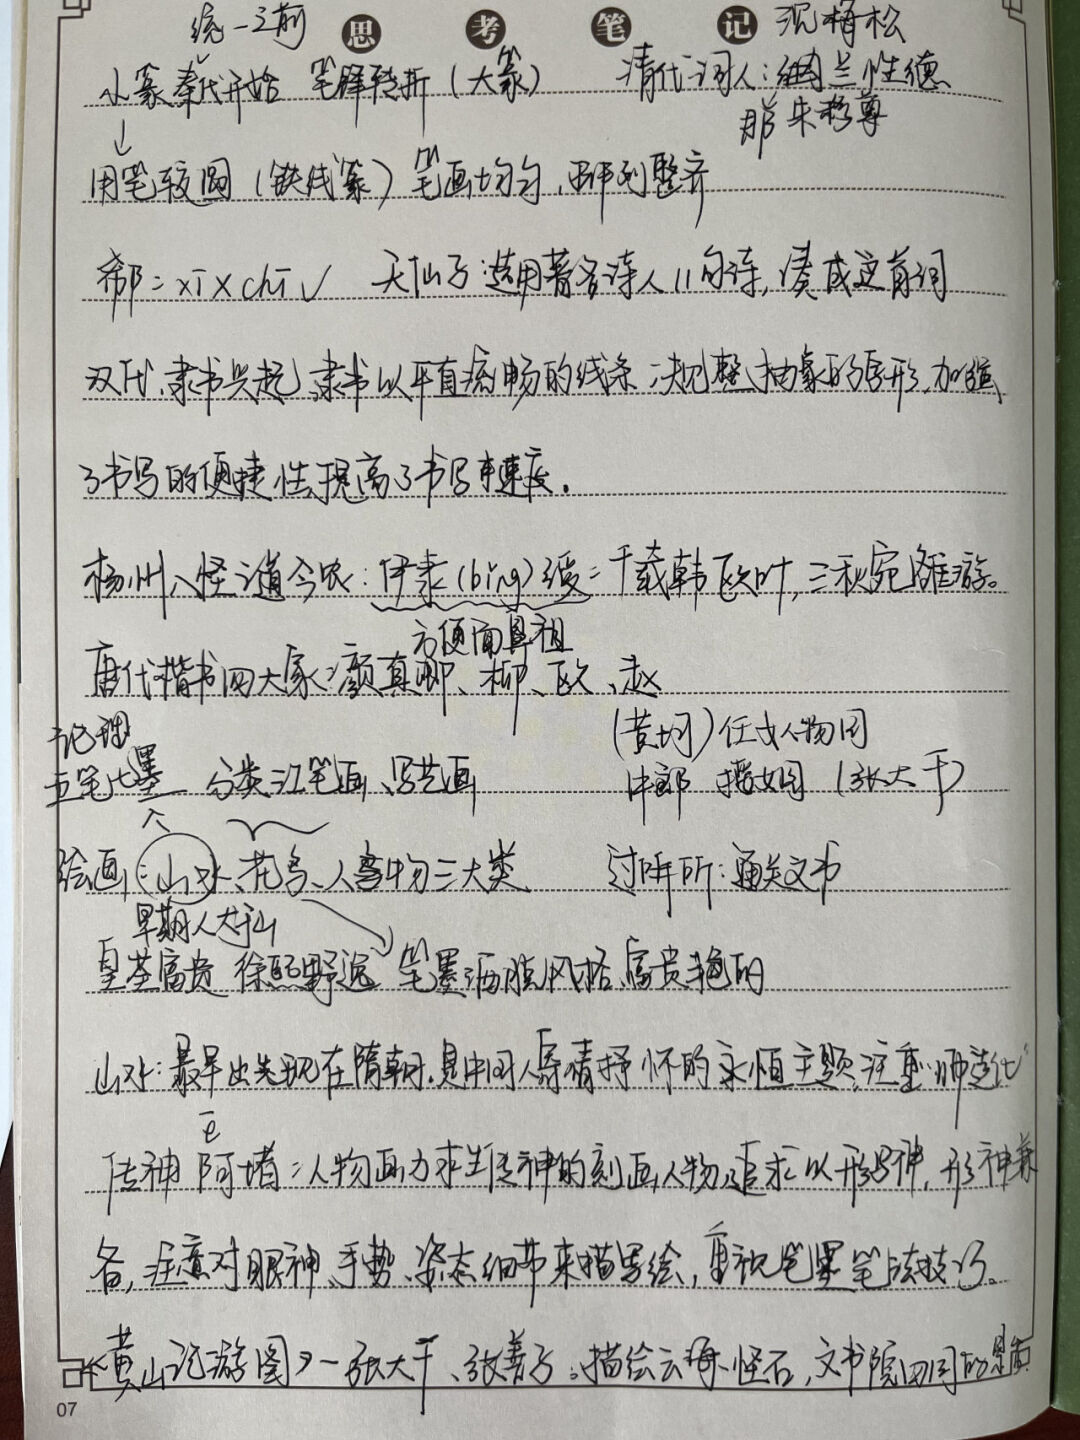 统一之前 思考笔记 沈梅松
小篆秦代开始 笔锋转折（大篆） 清代词人：纳兰性德
朱彝尊
用笔较圆（铁线篆）笔画均匀，排列整齐
郗：xī × chī √ 天仙子：选用著名诗人11句诗，凑成这首词
汉代，隶书兴起，隶书以平直流畅的线条 规整抽象的字形，加强
了书写的便捷性，提高了书写速度。
扬州八怪之道今农：伊隶(bing)绶：千载韩欧叶，三秋宛雅游。
方便面鼻祖
唐代楷书四大家：颜真卿、柳、欧、赵
（黄均）仕女人物图
五笔七墨 分类：江笔画、写艺画 中郎 （张大千）
绘画：山水、花鸟、人物三大类 过所：通关文书
早期人大于山
皇荃富贵 徐熙野逸 笔墨洒脱风格，富贵艳的
山水：最早出现在隋朝，是中国人寄情抒怀的永恒主题，注重“师造化”
ē
传神阿堵：人物画力求生传神的刻画人物，追求以形写神，形神兼
备，注意对眼神、手势、姿态细节来描绘，重视笔墨笔法技巧。
《黄山记游图》－张大千、张善子：描绘云海、怪石，文书院四周的景色
07